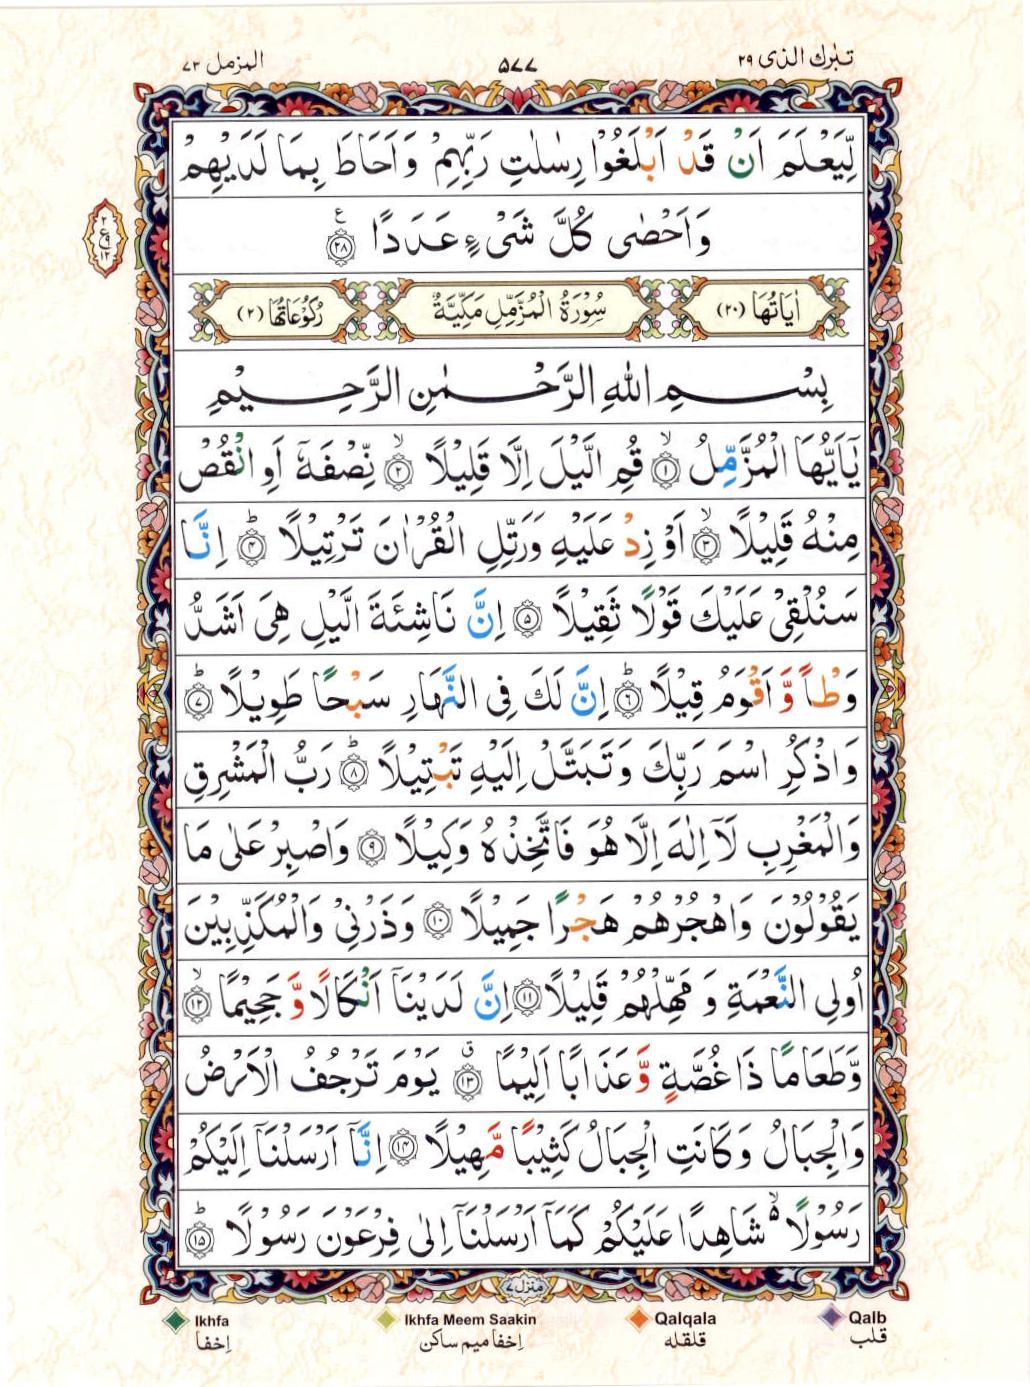 تبٰرك الذى ٢٩
٥٧٧
المزمل ٧٣
لِّيَعْلَمَ اَنْ قَدْ اَبْلَغُوْا رِسٰلٰتِ رَبِّهِمْ وَاَحَاطَ بِمَا لَدَيْهِمْ
وَاَحْصٰى كُلَّ شَىْءٍ عَدَدًا ﴿٢٨﴾ ع
٢
ع ٩
١٢
اٰيَاتُهَا (٢٠) سُوْرَةُ الْمُزَّمِّلِ مَكِّيَّةٌ رُكُوْعَاتُهَا (٢)
بِسْمِ اللّٰهِ الرَّحْمٰنِ الرَّحِيْمِ
يٰٓاَيُّهَا الْمُزَّمِّلُ ﴿١﴾ۙ قُمِ الَّيْلَ اِلَّا قَلِيْلًا ﴿٢﴾ۙ نِّصْفَهٗٓ اَوِ انْقُصْ
مِنْهُ قَلِيْلًا ﴿٣﴾ۙ اَوْ زِدْ عَلَيْهِ وَرَتِّلِ الْقُرْاٰنَ تَرْتِيْلًا ﴿٤﴾ؕ اِنَّا
سَنُلْقِىْ عَلَيْكَ قَوْلًا ثَقِيْلًا ﴿٥﴾ اِنَّ نَاشِئَةَ الَّيْلِ هِىَ اَشَدُّ
وَطْاً وَّاَقْوَمُ قِيْلًا ﴿٦﴾ؕ اِنَّ لَكَ فِى النَّهَارِ سَبْحًا طَوِيْلًا ﴿٧﴾ؕ
وَاذْكُرِ اسْمَ رَبِّكَ وَتَبَتَّلْ اِلَيْهِ تَبْتِيْلًا ﴿٨﴾ؕ رَبُّ الْمَشْرِقِ
وَالْمَغْرِبِ لَآ اِلٰهَ اِلَّا هُوَ فَاتَّخِذْهُ وَكِيْلًا ﴿٩﴾ وَاصْبِرْ عَلٰى مَا
يَقُوْلُوْنَ وَاهْجُرْهُمْ هَجْرًا جَمِيْلًا ﴿١٠﴾ وَذَرْنِىْ وَالْمُكَذِّبِيْنَ
اُولِى النَّعْمَةِ وَمَهِّلْهُمْ قَلِيْلًا ﴿١١﴾ اِنَّ لَدَيْنَآ اَنْكَالًا وَّجَحِيْمًا ﴿١٢﴾ۙ
وَّطَعَامًا ذَا غُصَّةٍ وَّعَذَابًا اَلِيْمًا ﴿١٣﴾ق يَوْمَ تَرْجُفُ الْاَرْضُ
وَالْجِبَالُ وَكَانَتِ الْجِبَالُ كَثِيْبًا مَّهِيْلًا ﴿١٤﴾ اِنَّآ اَرْسَلْنَآ اِلَيْكُمْ
رَسُوْلًا ۙ۬ شَاهِدًا عَلَيْكُمْ كَمَآ اَرْسَلْنَآ اِلٰى فِرْعَوْنَ رَسُوْلًا ﴿١٥﴾ؕ
منزل ٧
Ikhfa Ikhfa Meem Saakin Qalqala Qalb
اِخفا اِخفا میم ساکن قلقله قلب